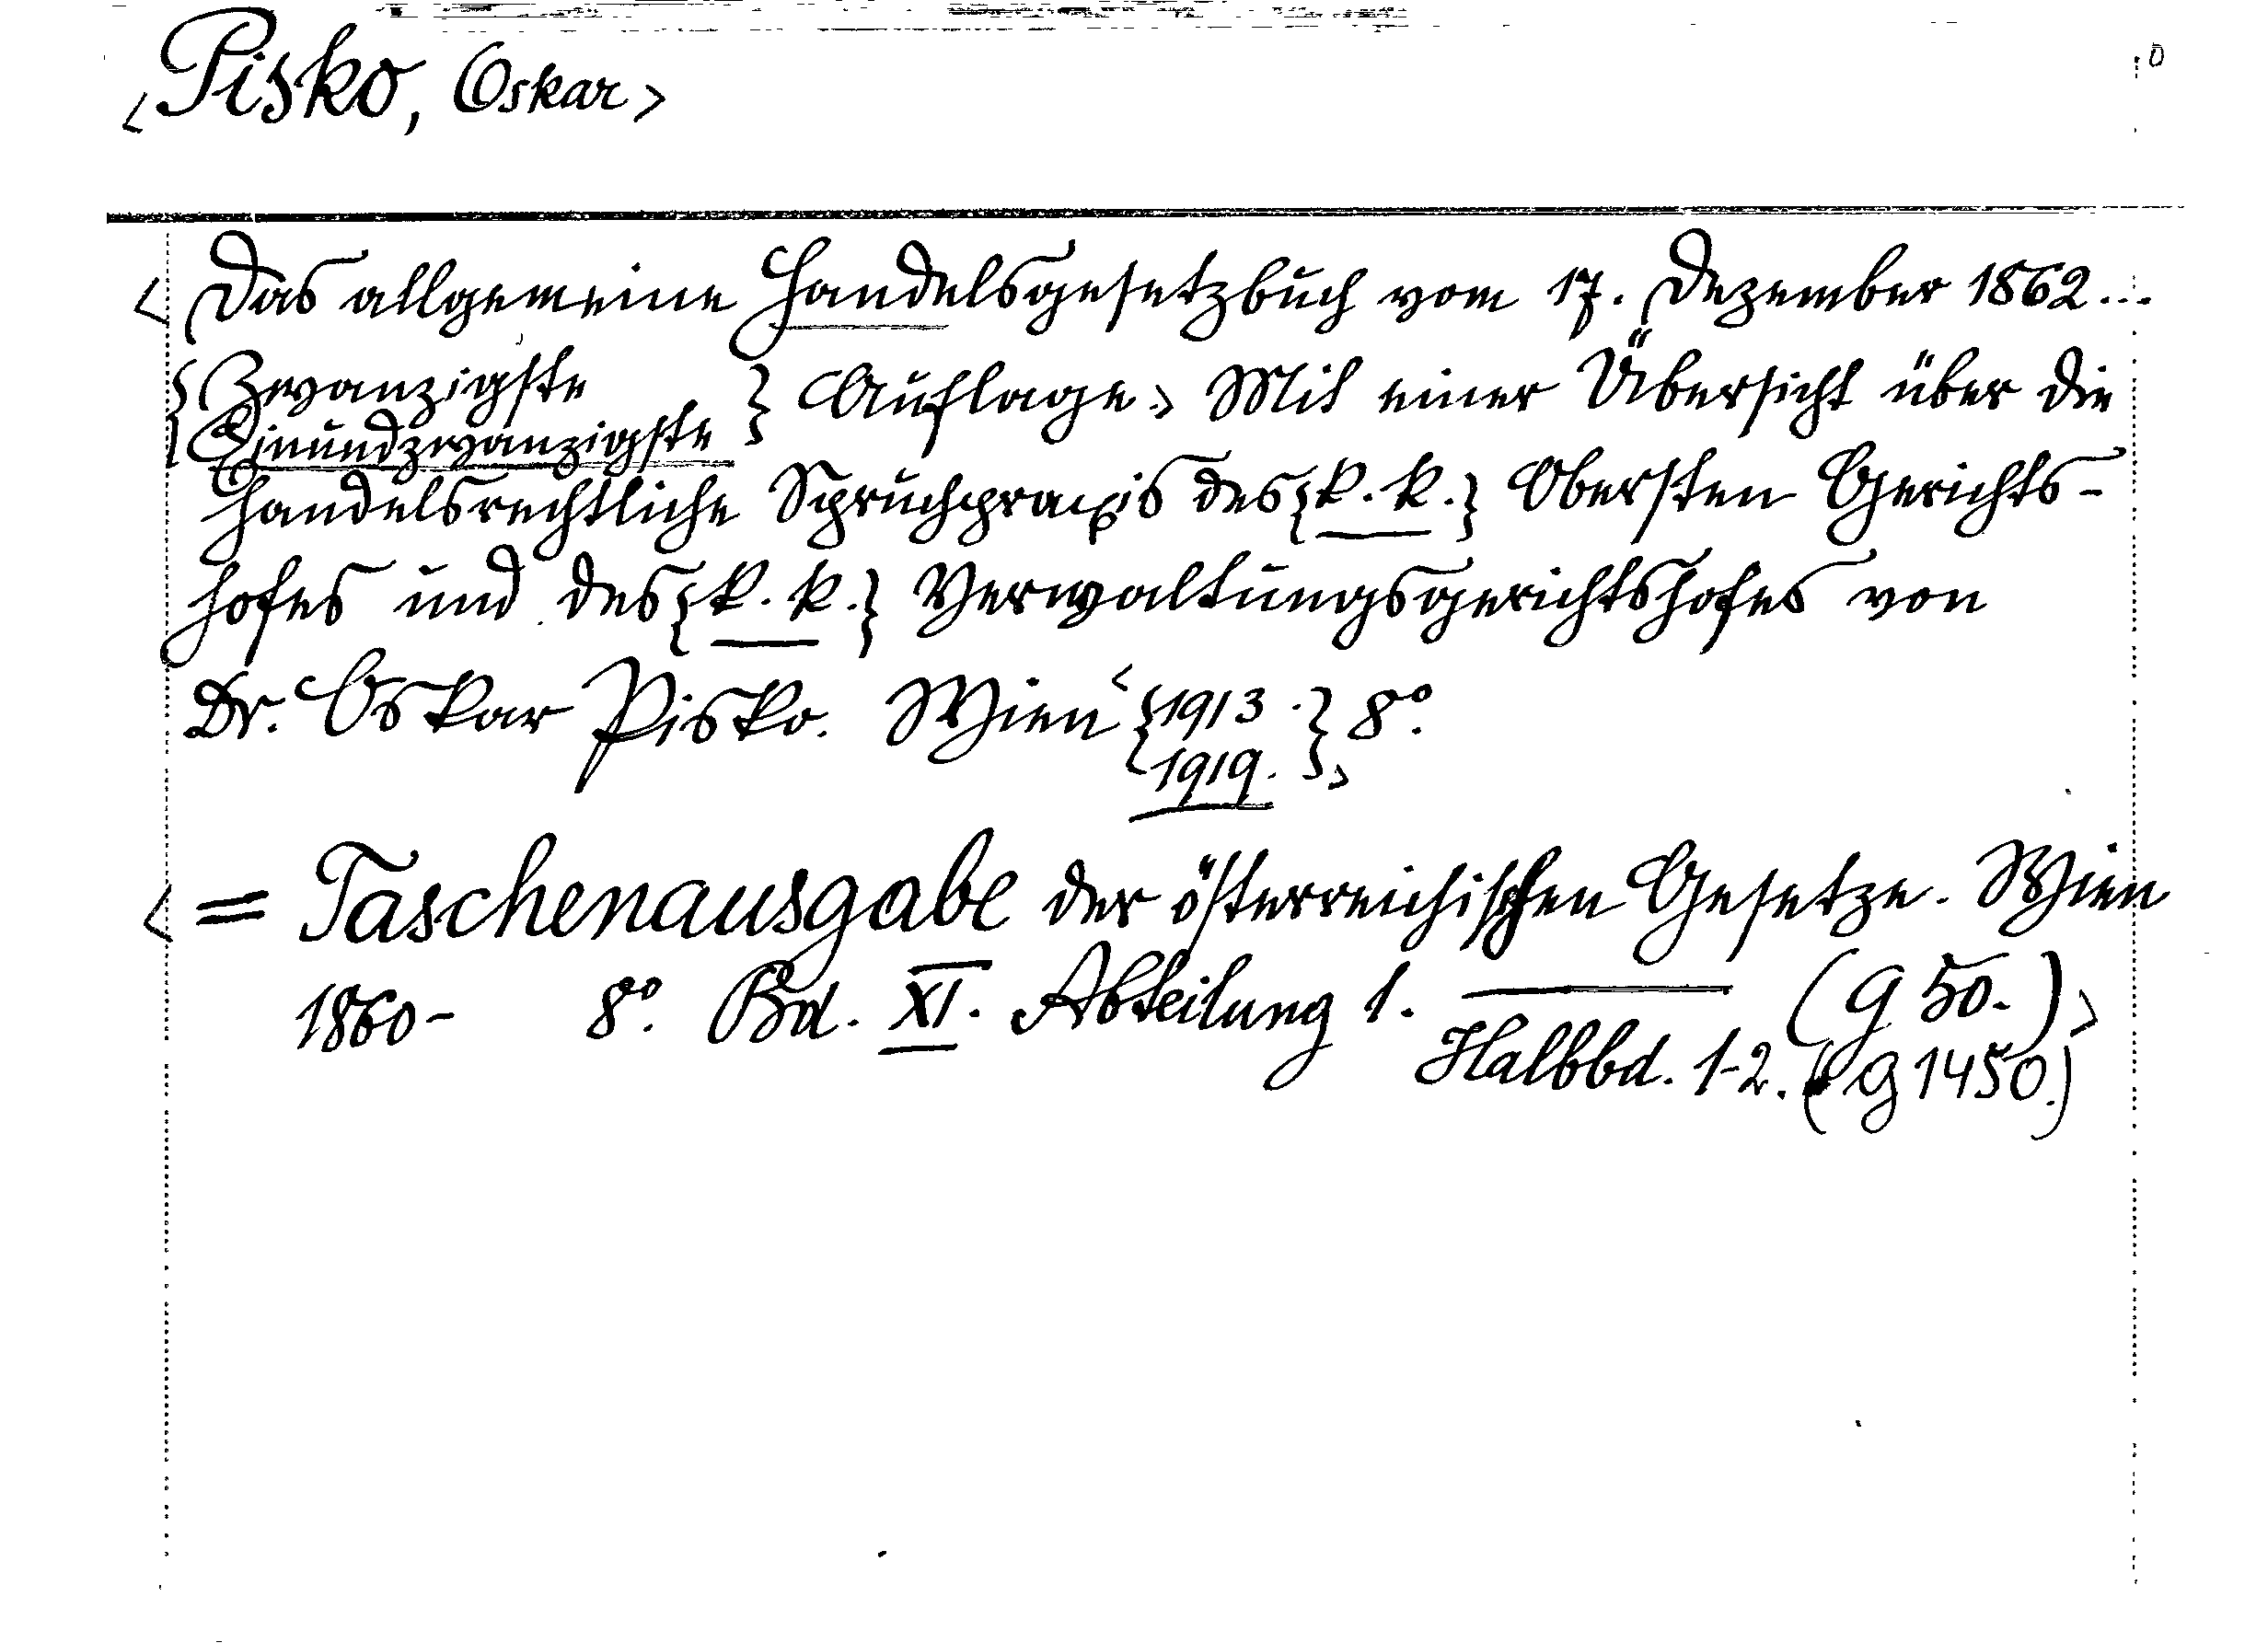 <Pisko, Oskar>
<Das allgemeine Handelsgesetzbuch vom 17. Dezember 1862...
{Zwanzigste } Auflage.> Mit einer Übersicht über die
{Einundzwanzigste
handelsrechtliche Spruchpraxis des {k. k.} Obersten Gerichts-
hofes und des {k. k.} Verwaltungsgerichtshofes von
Dr. Oskar Pisko. Wien <{1913.} 8°.
1919.>
<= Taschenausgabe der österreichischen Gesetze. Wien
1860- 8°. Bd. XI. Abteilung 1. (G 50.)>
Halbbd. 1-2. (G 1450.)